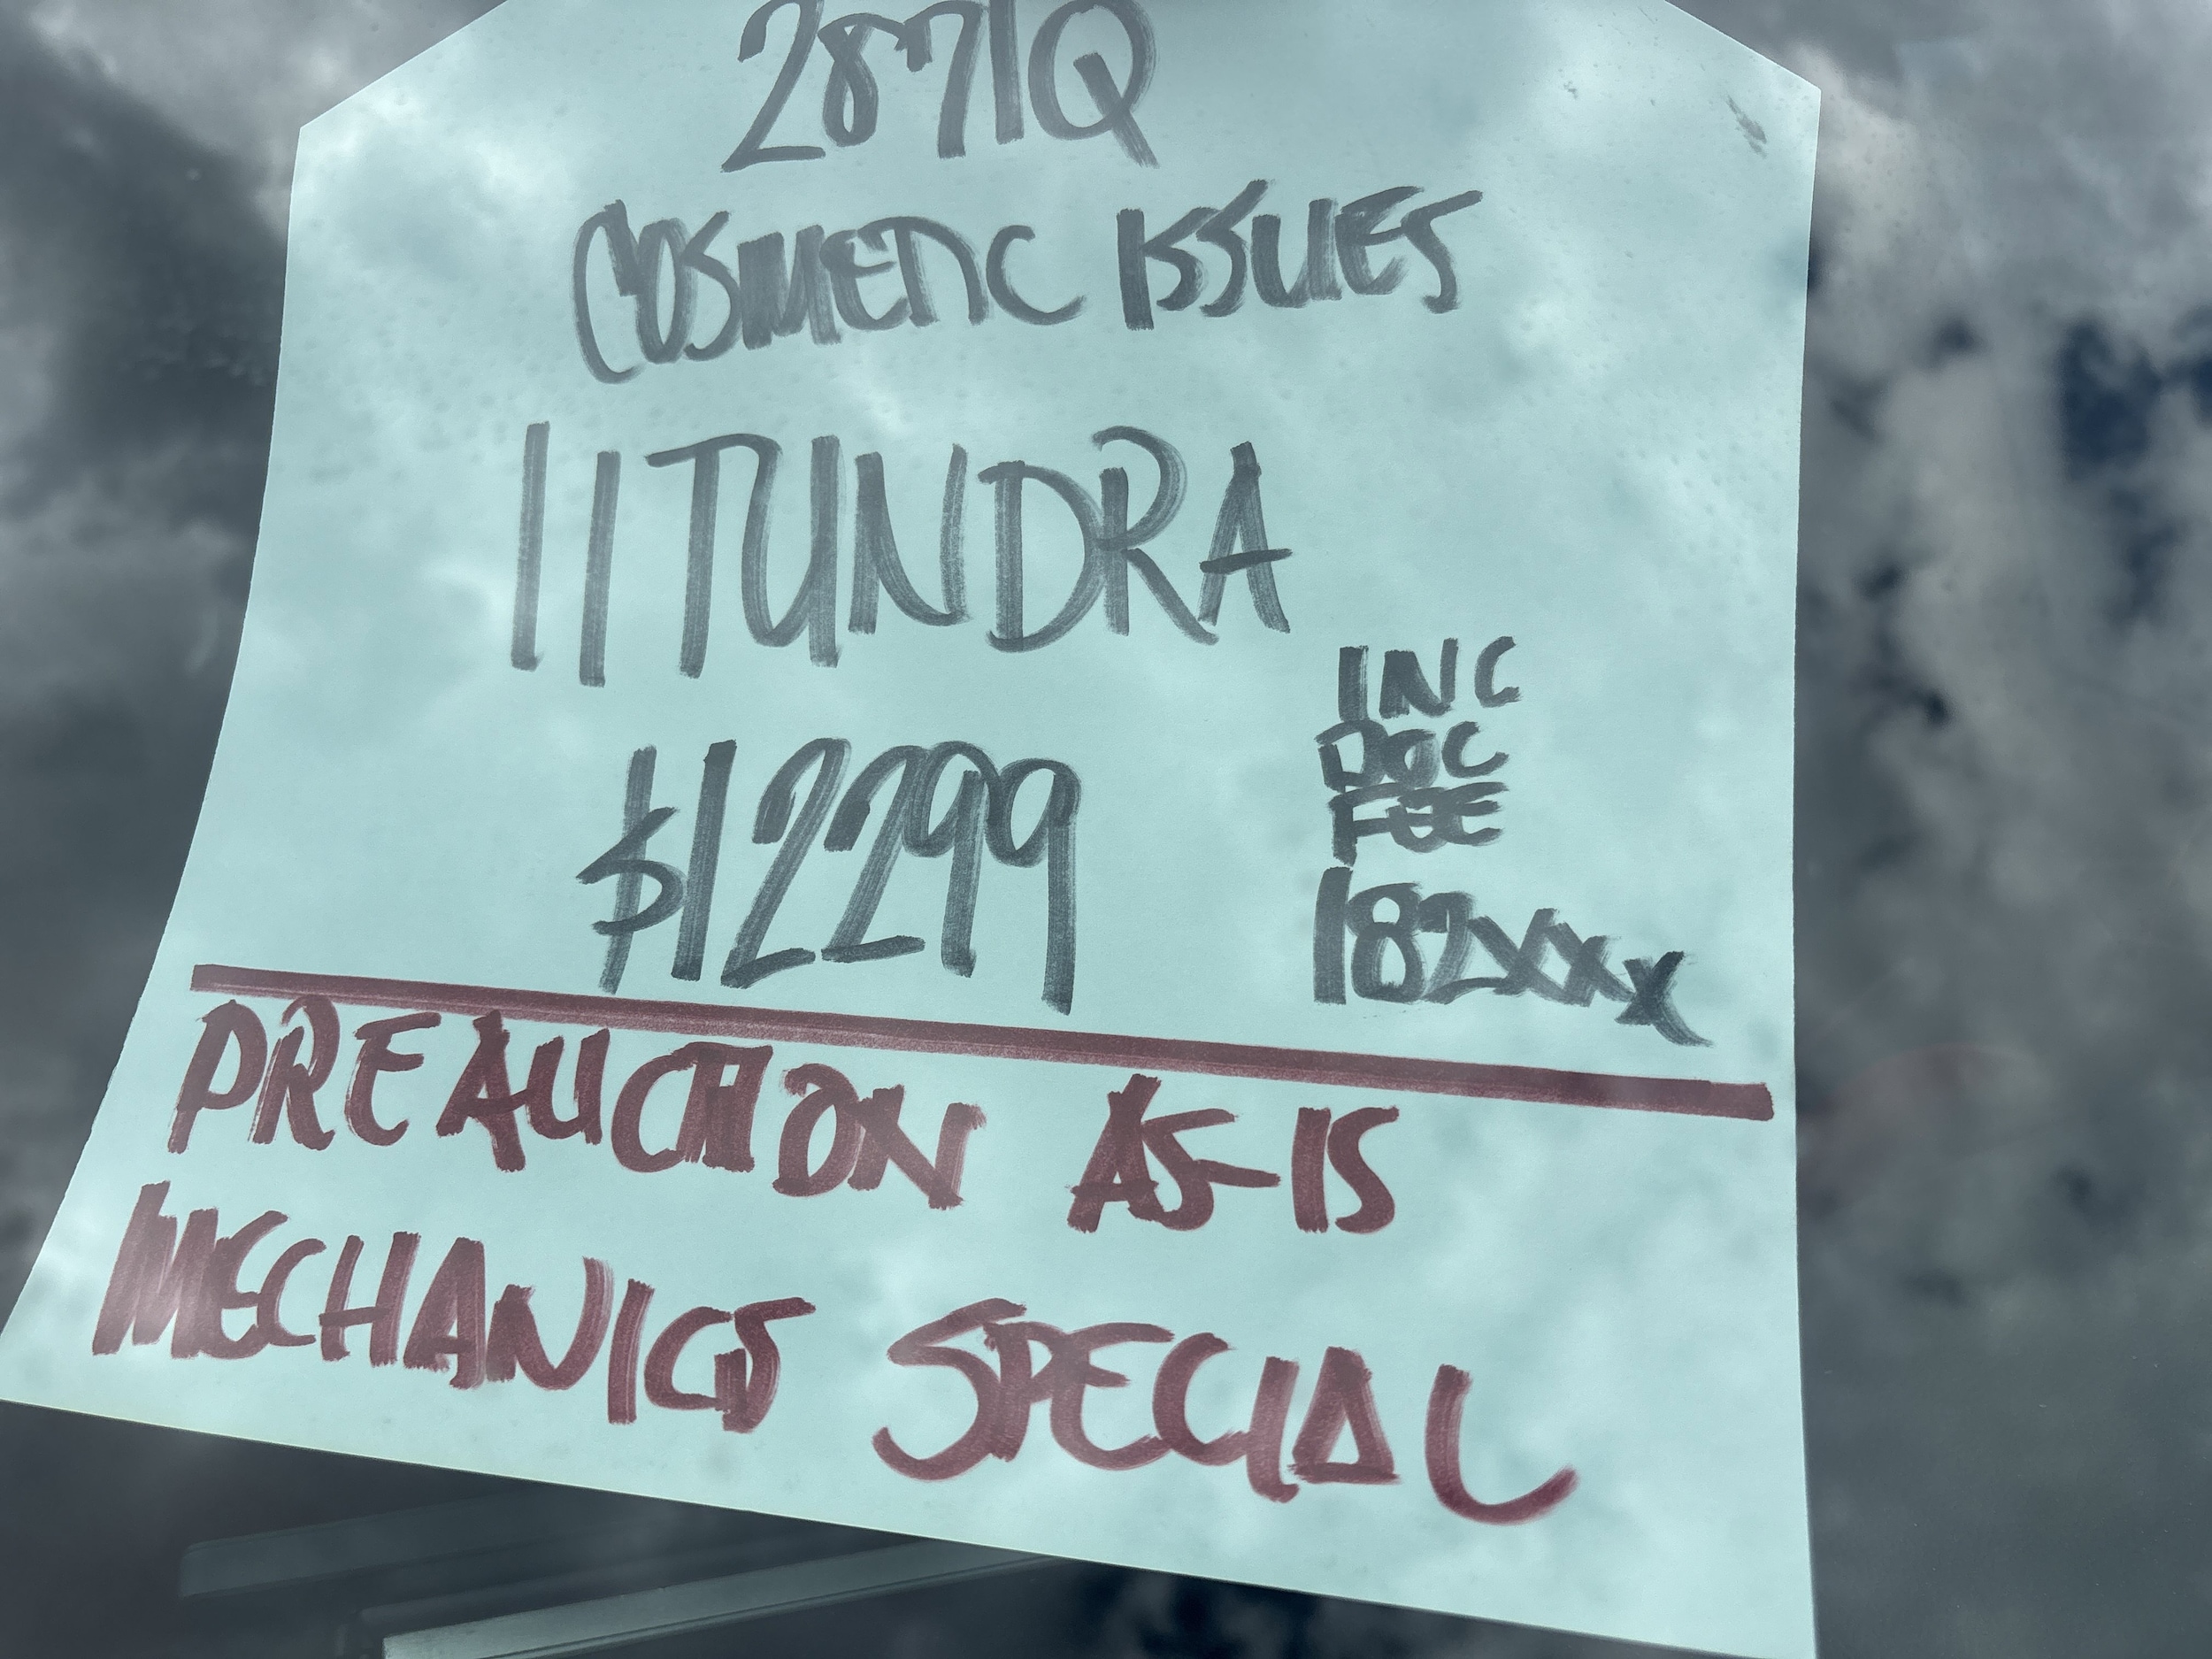 2871Q
COSMETIC ISSUES
11 TUNDRA
$12299
INC
DOC
FEE
182XXX
PREAUCTION AS-IS
MECHANICS SPECIAL